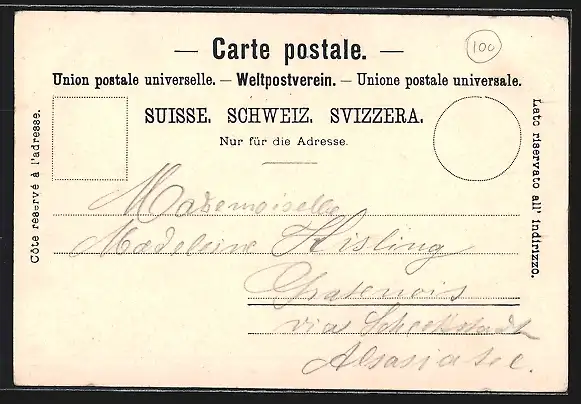 — Carte postale. —
100
Union postale universelle. — Weltpostverein. — Unione postale universale.
SUISSE. SCHWEIZ. SVIZZERA.
Nur für die Adresse.
Côte reservé à l'adresse.
Lato riservato all' indirizzo.
Mademoiselle
Madeleine Kisling
Chatenois
via Schelestadt